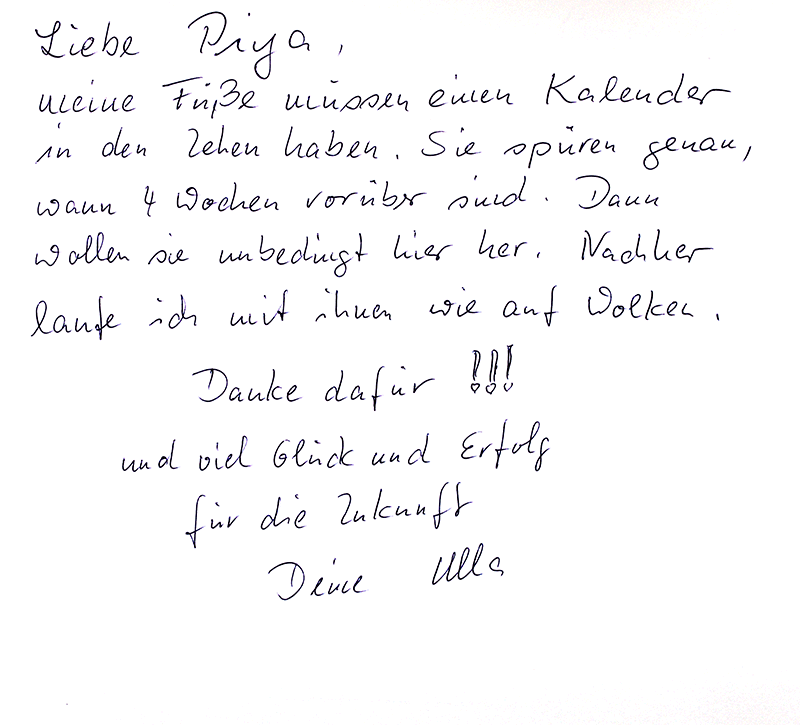 Liebe Piya,
meine Füße müssen einen Kalender
in den Zehen haben. Sie spüren genau,
wann 4 Wochen vorüber sind. Dann
wollen sie unbedingt hier her. Nachher
laufe ich mit ihnen wie auf Wolken.
Danke dafür !!!
und viel Glück und Erfolg
für die Zukunft
Deine Ulla